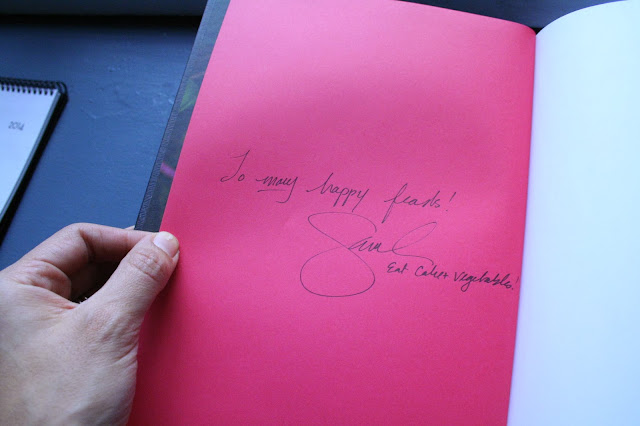 2014
To many happy feasts!
Sarah
Eat Cake + Vegetables!